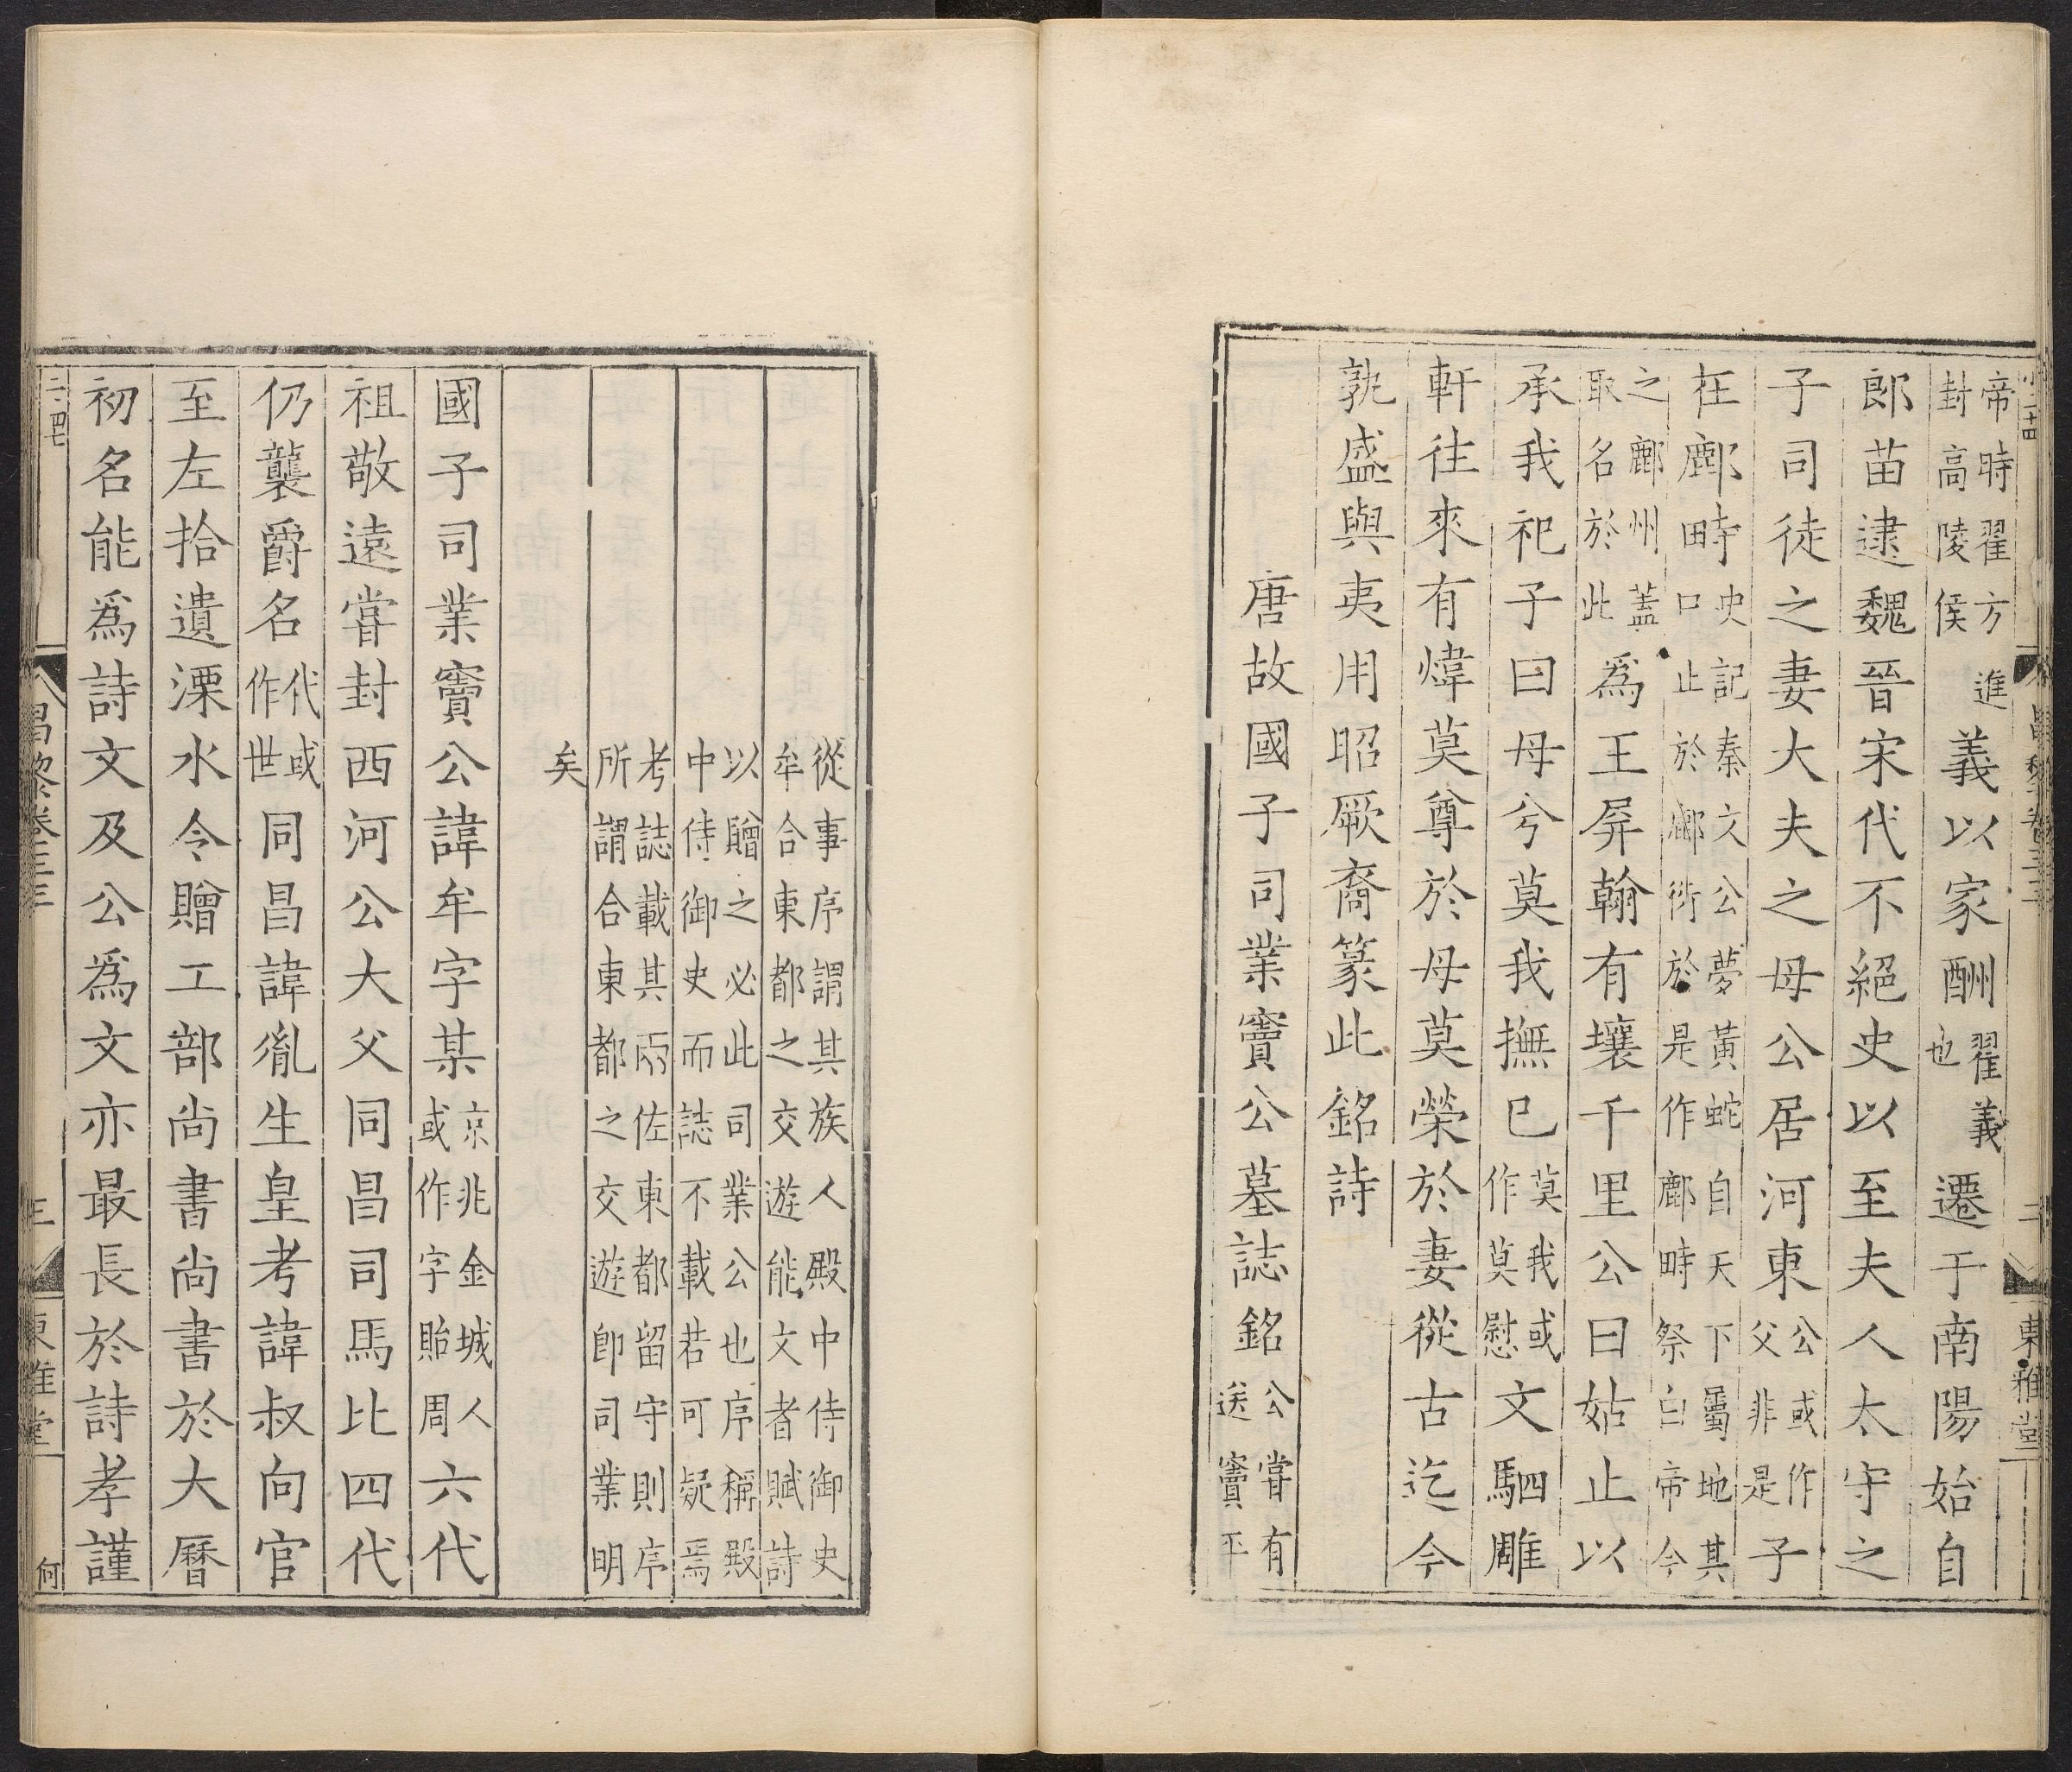 小二十四 昌黎卷三三 二 東雅堂
帝時翟方進封高陵侯義以家酬翟義也遷于南陽始自
郎苗逮魏晉宋代不絕史以至夫人太守之
子司徒之妻大夫之母公居河東公或作父非是子
在鄜畤史記秦文公夢黃蛇自天下屬地其口止於鄜衍於是作鄜畤祭白帝今
之鄜州蓋取名於此為王屏翰有壤千里公曰姑止以
承我祀子曰母兮莫我撫已莫我或作莫慰文駟雕
軒往來有煒莫尊於母莫榮於妻從古迄今
孰盛與夷用昭厥裔篆此銘詩
唐故國子司業竇公墓誌銘公嘗有送竇平
從事序謂其族人殿中侍御史牟合東都之交遊能文者賦詩
以贈之必此司業公也序稱殿中侍御史而誌不載若可疑焉
考誌載其兩佐東都留守則序所謂合東都之交遊即司業明
矣
國子司業竇公諱牟字某京兆金城人或作字貽周六代
祖敬遠嘗封西河公大父同昌司馬比四代
仍襲爵名代或作世同昌諱胤生皇考諱叔向官
至左拾遺溧水令贈工部尚書尚書於大曆
初名能為詩文及公為文亦最長於詩孝謹
二、四七 昌黎卷三三 三 東雅堂 何